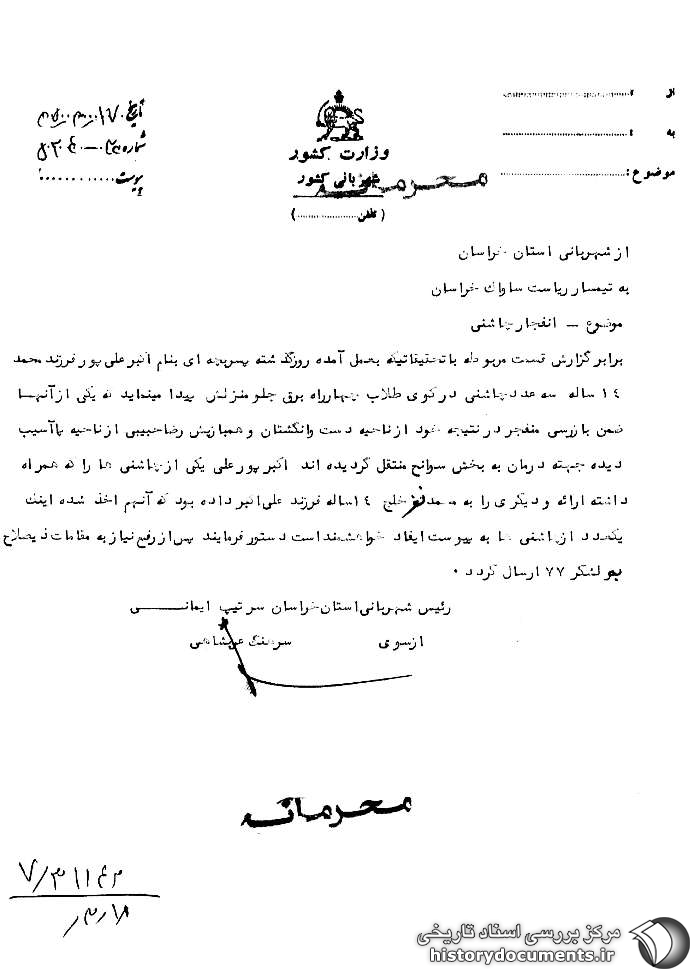 از :
به :
موضوع :
وزارت کشور
شهربانی کشور
محرمانه
( تلفن )
تاریخ
شماره
پیوست
از شهربانی استان خراسان
به تیمسار ریاست ساواک خراسان
موضوع – انفجار چاشنی
برابر گزارش قسمت مربوطه با تحقیقاتیکه بعمل آمده روز گذشته پسربچه ای بنام اکبر علی پور فرزند محمد
۱۴ ساله سه عدد چاشنی در کوی طلاب چهارراه برق جلو منزلش پیدا مینماید که یکی از آنهـا
ضمن بازرسی منفجر در نتیجه خود از ناحیه دست و انگشتان و همبازیش رضا حبیبی از ناحیه پا آسیب
دیده جهته درمان به بخش سوانح منتقل گردیده اند اکبر پور علی یکی از چاشنی ها را که همراه
داشته ارائه و دیگری را به محمد خلج ۱۴ ساله فرزند علی اکبر داده بود که آنهم اخذ شده اینک
یکعدد از چاشنی ها به پیوست ایفاد خواهشمند است دستور فرمایند پس از رفع نیاز به مقامات ذیصلاح
لشکر ۷۷ ارسال گردد .
رئیس شهربانی استان خراسان سرتیپ ایمانـــی
از سوی سرهنگ عربشاهی
محرمانه
مرکز بررسی اسناد تاریخی
historydocuments.ir